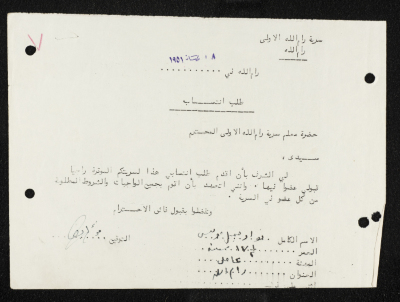 سرية رام الله الاولى
رام الله
١٩٥١
رام الله في
طلب انتساب
حضرة معلم سرية رام الله الاولى المحترم
سيدي ،
لي الشرف بأن اقدم طلب انتسابي هذا لسريتكم الموقرة راجيا
قبولي عضوا فيها . وانني اتعهد بأن اقوم بجميع الواجبات والشروط المطلوبة
من كل عضو في السرية .
وتفضلوا بقبول فائق الاحترام
التوقيع
الاسم الكامل :
العمر :
المهنة :
العنوان : رام الله